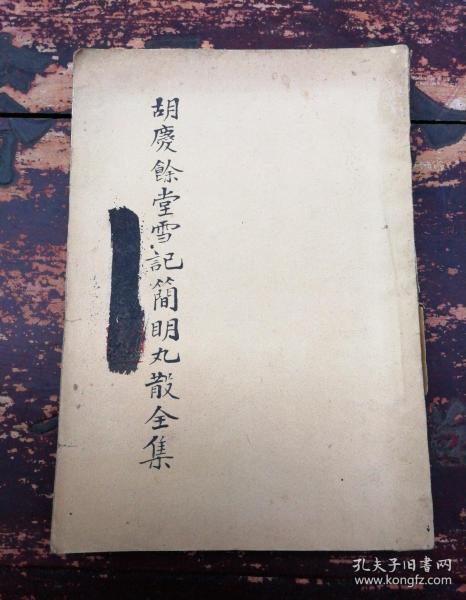 胡慶餘堂雪記簡明丸散全集
孔夫子旧书网
www.kongfz.com